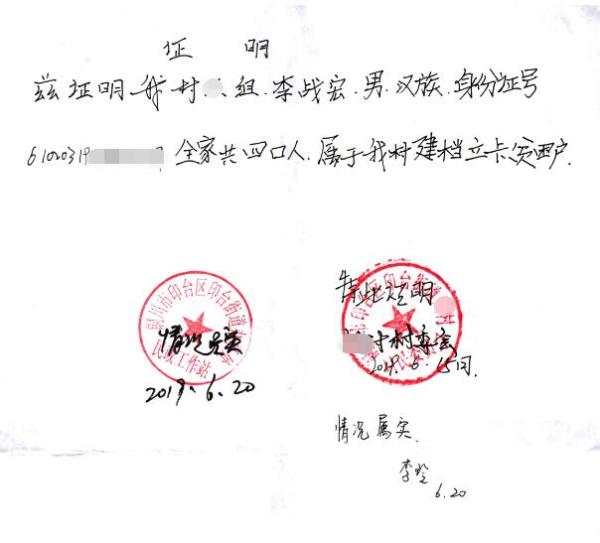 证 明
兹证明我村 组.李战宏.男.汉族.身份证号
全家共四口人.属于我村建档立卡贫困户.
铜川市印台区印台街道
民政工作站
情况属实
2019.6.20
特此证明
村 村委会
2019.6.15日.
情况属实.
李
6.20